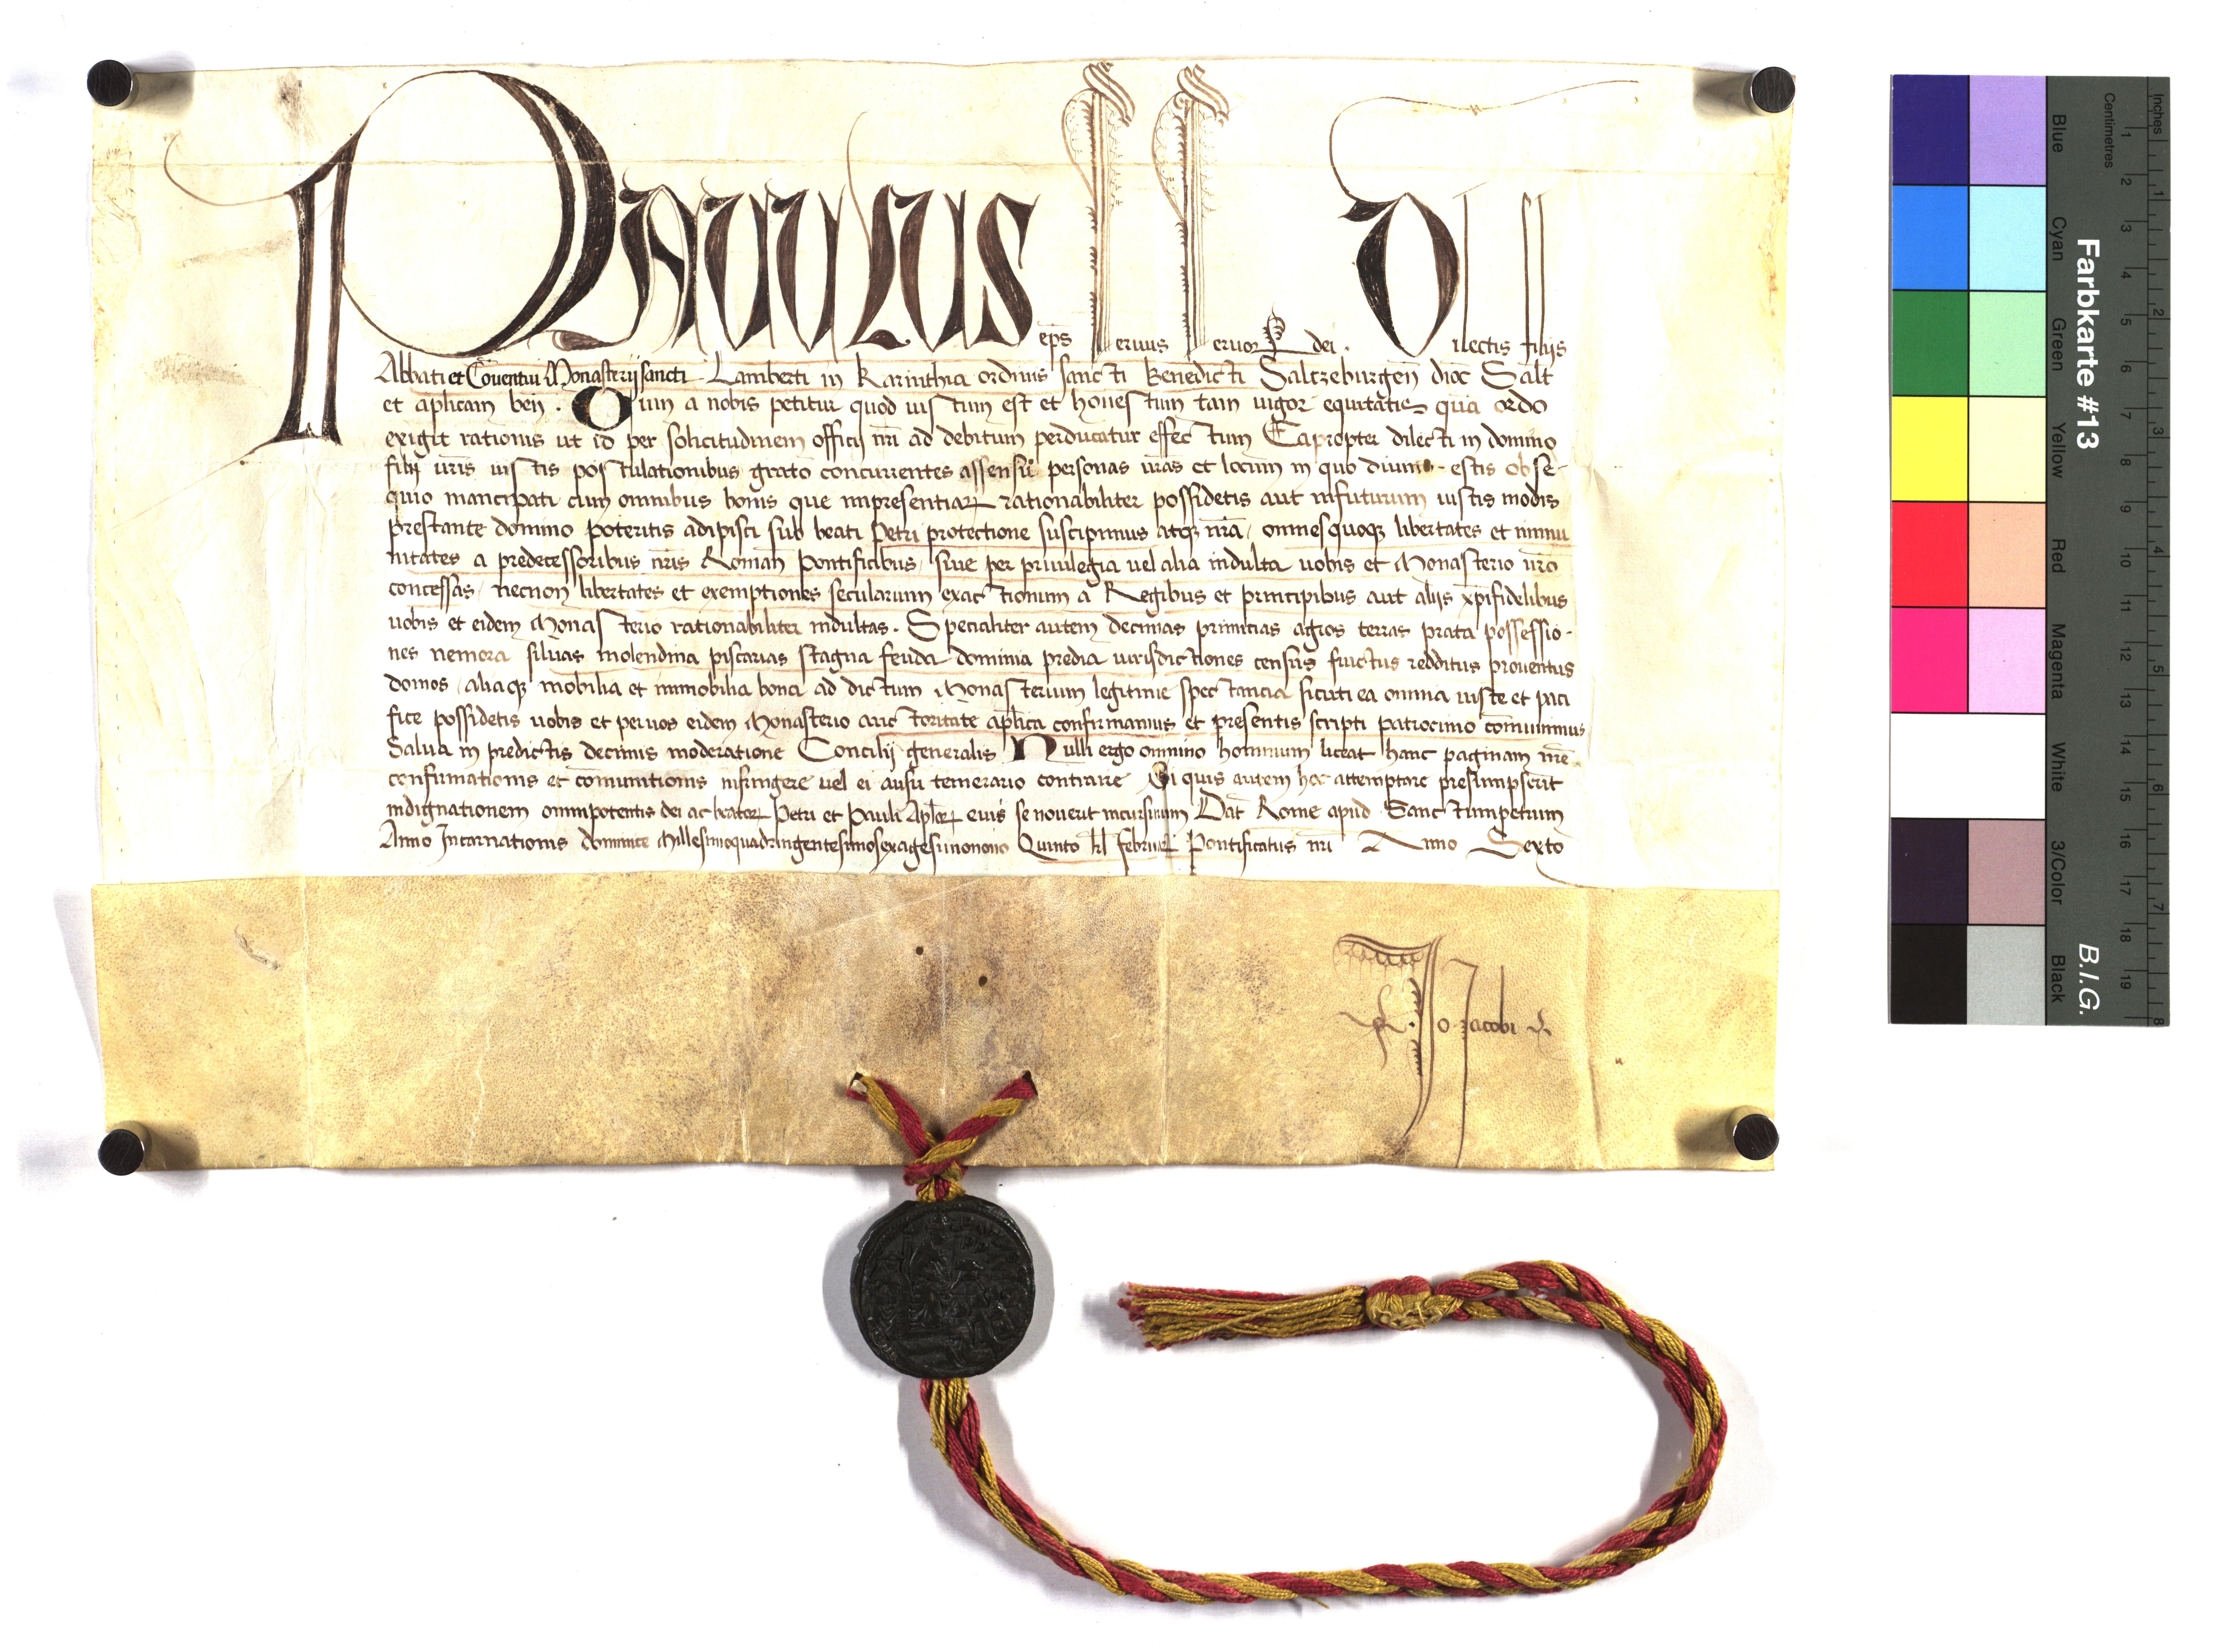 PAUULUS eps seruus seruor dei. Dilectis filijs
Abbati et Cōuentui Monasterij sancti Lamberti in Karinthia ordinis sancti Benedicti Saltzeburgen̄ dioc̄ Salt
et aplicam ben̄. Cum a nobis petitur quod iustum est et honestum tam uigor equitatis qua ordo
exigit rationis ut id per solicitudinem officij nr̄i ad debitum perducatur effectum Eapropter dilecti in domino
filij ur̄is iustis postulationibus grato concurrentes assensu personas ur̄as et locum in quo diuino estis obse-
quio mancipati cum omnibus bonis que inpresentiaꝝ rationabiliter possidetis aut infuturum iustis modis
prestante domino poteritis adipisci sub beati Petri protectione suscipimus atqꝫ nr̄a, omnesquoqꝫ libertates et inmu
nitates a predecessoribus nr̄is Roman̄ Pontificibus, siue per priuilegia uel alia indulta uobis et Monasterio ur̄o
concessas, necnon libertates et exemptiones secularium exactionum a Regibus et principibus aut alijs xp̄ifidelibus
uobis et eidem Monasterio rationabiliter indultas. Specialiter autem decimas primitias agros terras prata possessio-
nes nemora siluas molendina piscarias stagna feuda dominia predia iurisdictiones census fructus redditus prouentus
domos, aliaqꝫ mobilia et immobilia bona ad dictum Monasterium legitime spectancia sicuti ea omnia iuste et paci
fice possidetis uobis et peruos eidem Monasterio auctoritate aplica confirmamus et presentis scripti patrocinio cōmunimus
Salua in predictis decimis moderatione Concilij generalis Nulli ergo omnino hominum liceat hanc paginam nr̄e
confirmationis et cōmunitionis infringere uel ei ausu temerario contraire Si quis autem hoc attemptare presumpserit
indignationem omnipotentis dei ac beatoꝝ Petri et Pauli Aplōꝝ eius se nouerit incursurum Dat̄ Rome apud Sanctumpetrum
Anno Incarnationis dominice Millesimoquadringentesimosexagesimonono Quinto kl̄ februarꝝ Pontificatus nr̄i Anno Sexto
Jo Jacobi
Farbkarte #13
B.I.G.
Inches
Centimetres
1 2 3 4 5 6 7 8 9 10 11 12 13 14 15 16 17 18 19
1 2 3 4 5 6 7 8
Blue
Cyan
Green
Yellow
Red
Magenta
White
3/Color
Black